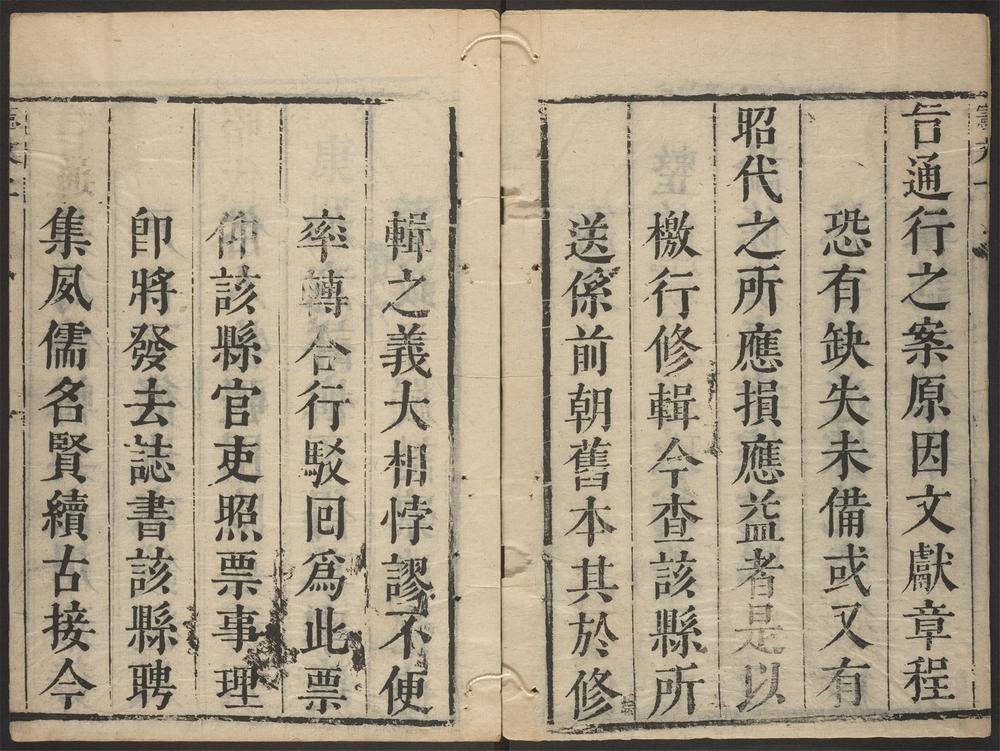 旨通行之案原因文獻章程
恐有缺失未備或又有
昭代之所應損應益者是以
檄行修輯今查該縣所
送係前朝舊本其於修
輯之義大相悖謬不便
率轉合行駁回爲此票
仰該縣官吏照票事理
卽將發去誌書該縣聘
集夙儒名賢續古接今